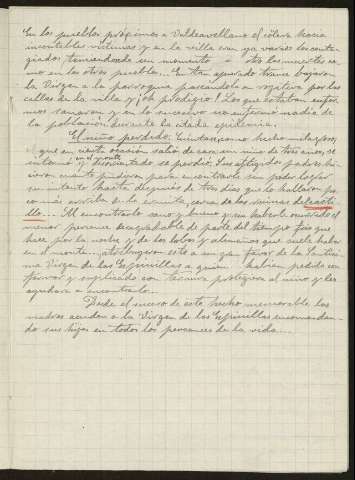 En los pueblos próximos a Valdeavellano el cólera hacía
incontables víctimas y en la villa eran ya varios los conta-
giados temiéndose un momento a otro las muertes co-
mo en los otros pueblos... En tan apurado trance bajaron
la Virgen a la parroquia paseándola en rogativa por las
calles de la villa y ¡oh prodigio! Los que estaban enfer-
mos sanaron y en lo sucesivo no enfermó nadie de
la población durante la citada epidemia.
El niño perdido. Cuentan, como hecho milagroso,
el que en cierta ocasión salió de casa un niño de tres años, se
internó en el monte y desorientado se perdió. Sus afligidos padres hi-
cieron cuanto pudieron para encontrarle sin poder lograr
su intento hasta después de tres días que lo hallaron po-
co más arriba de la ermita, cerca de las ruinas del casti-
llo... Al encontrarlo sano y bueno y sin haberle ocurrido el
menor percance desagradable de parte del tiempo frío que
hace por la noche y de los lobos y alimañas que suele haber
en el monte... atribuyeron esto a un gran favor de la Santísi-
ma Virgen de las Espinillas a quien habían pedido con
fervor y suplicado con lágrimas protegiera al niño y les
ayudara a encontrarlo.
Desde el suceso de este hecho memorable las
madres acuden a la Virgen de las Espinillas encomendan-
do sus hijos en todos los percances de la vida...